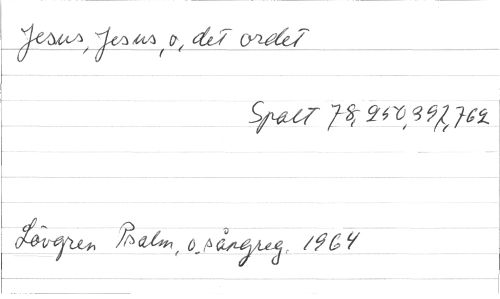 Jesus, Jesus, o, det ordet
Spalt 78, 250, 397, 762
Lövgren Psalm, o. sångreg. 1964